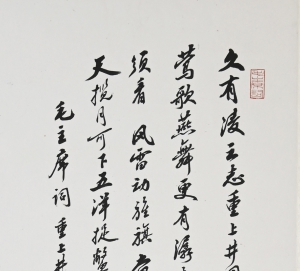 久有凌云志重上井
莺歌燕舞更有潺
须看 风雷动旌旗
天揽月可下五洋捉鳖
毛主席词 重上井